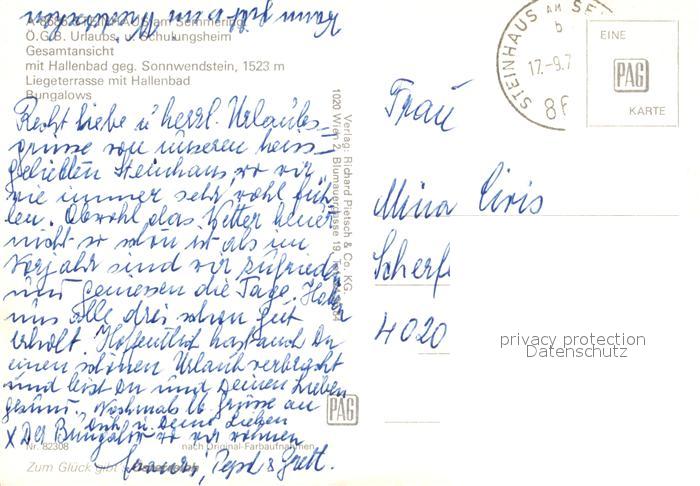 STEINHAUS AM SE
17.-9.7
b
86
EINE
PAG
KARTE
A-8685 STEINHAUS am Semmering
Ö.G.B. Urlaubs- u. Schulungsheim
Gesamtansicht
mit Hallenbad geg. Sonnwendstein, 1523 m
Liegeterrasse mit Hallenbad
Bungalows
Recht liebe u herzl. Urlaubs-
grüsse von unseren heiss-
geliebten Steinhaus, wo wir
wie immer sehr wohl füh-
len. Obwohl das Wetter heuer
nicht so schön ist als im
Vorjahr sind wir zufrieden
und geniessen die Tage. Haben
uns alle drei schon gut
erholt. Hoffentlich hast auch Du
einen schönen Urlaub verbracht
und bist Du und Deinen Lieben
gesund. Nochmals lb. Grüsse an
Dich u. Deine Lieben
X Der Bungalow wo wir wohnen
Pepi & Grett.
Verlag: Richard Pietsch & Co. KG.
1020 Wien 2, Blumauergasse 19
Frau
Mina Ciris
Scherf
4020
privacy protection
Datenschutz
PAG
Nr. 82308
nach Original-Farbaufnahmen
Zum Glück gibt's Österreich